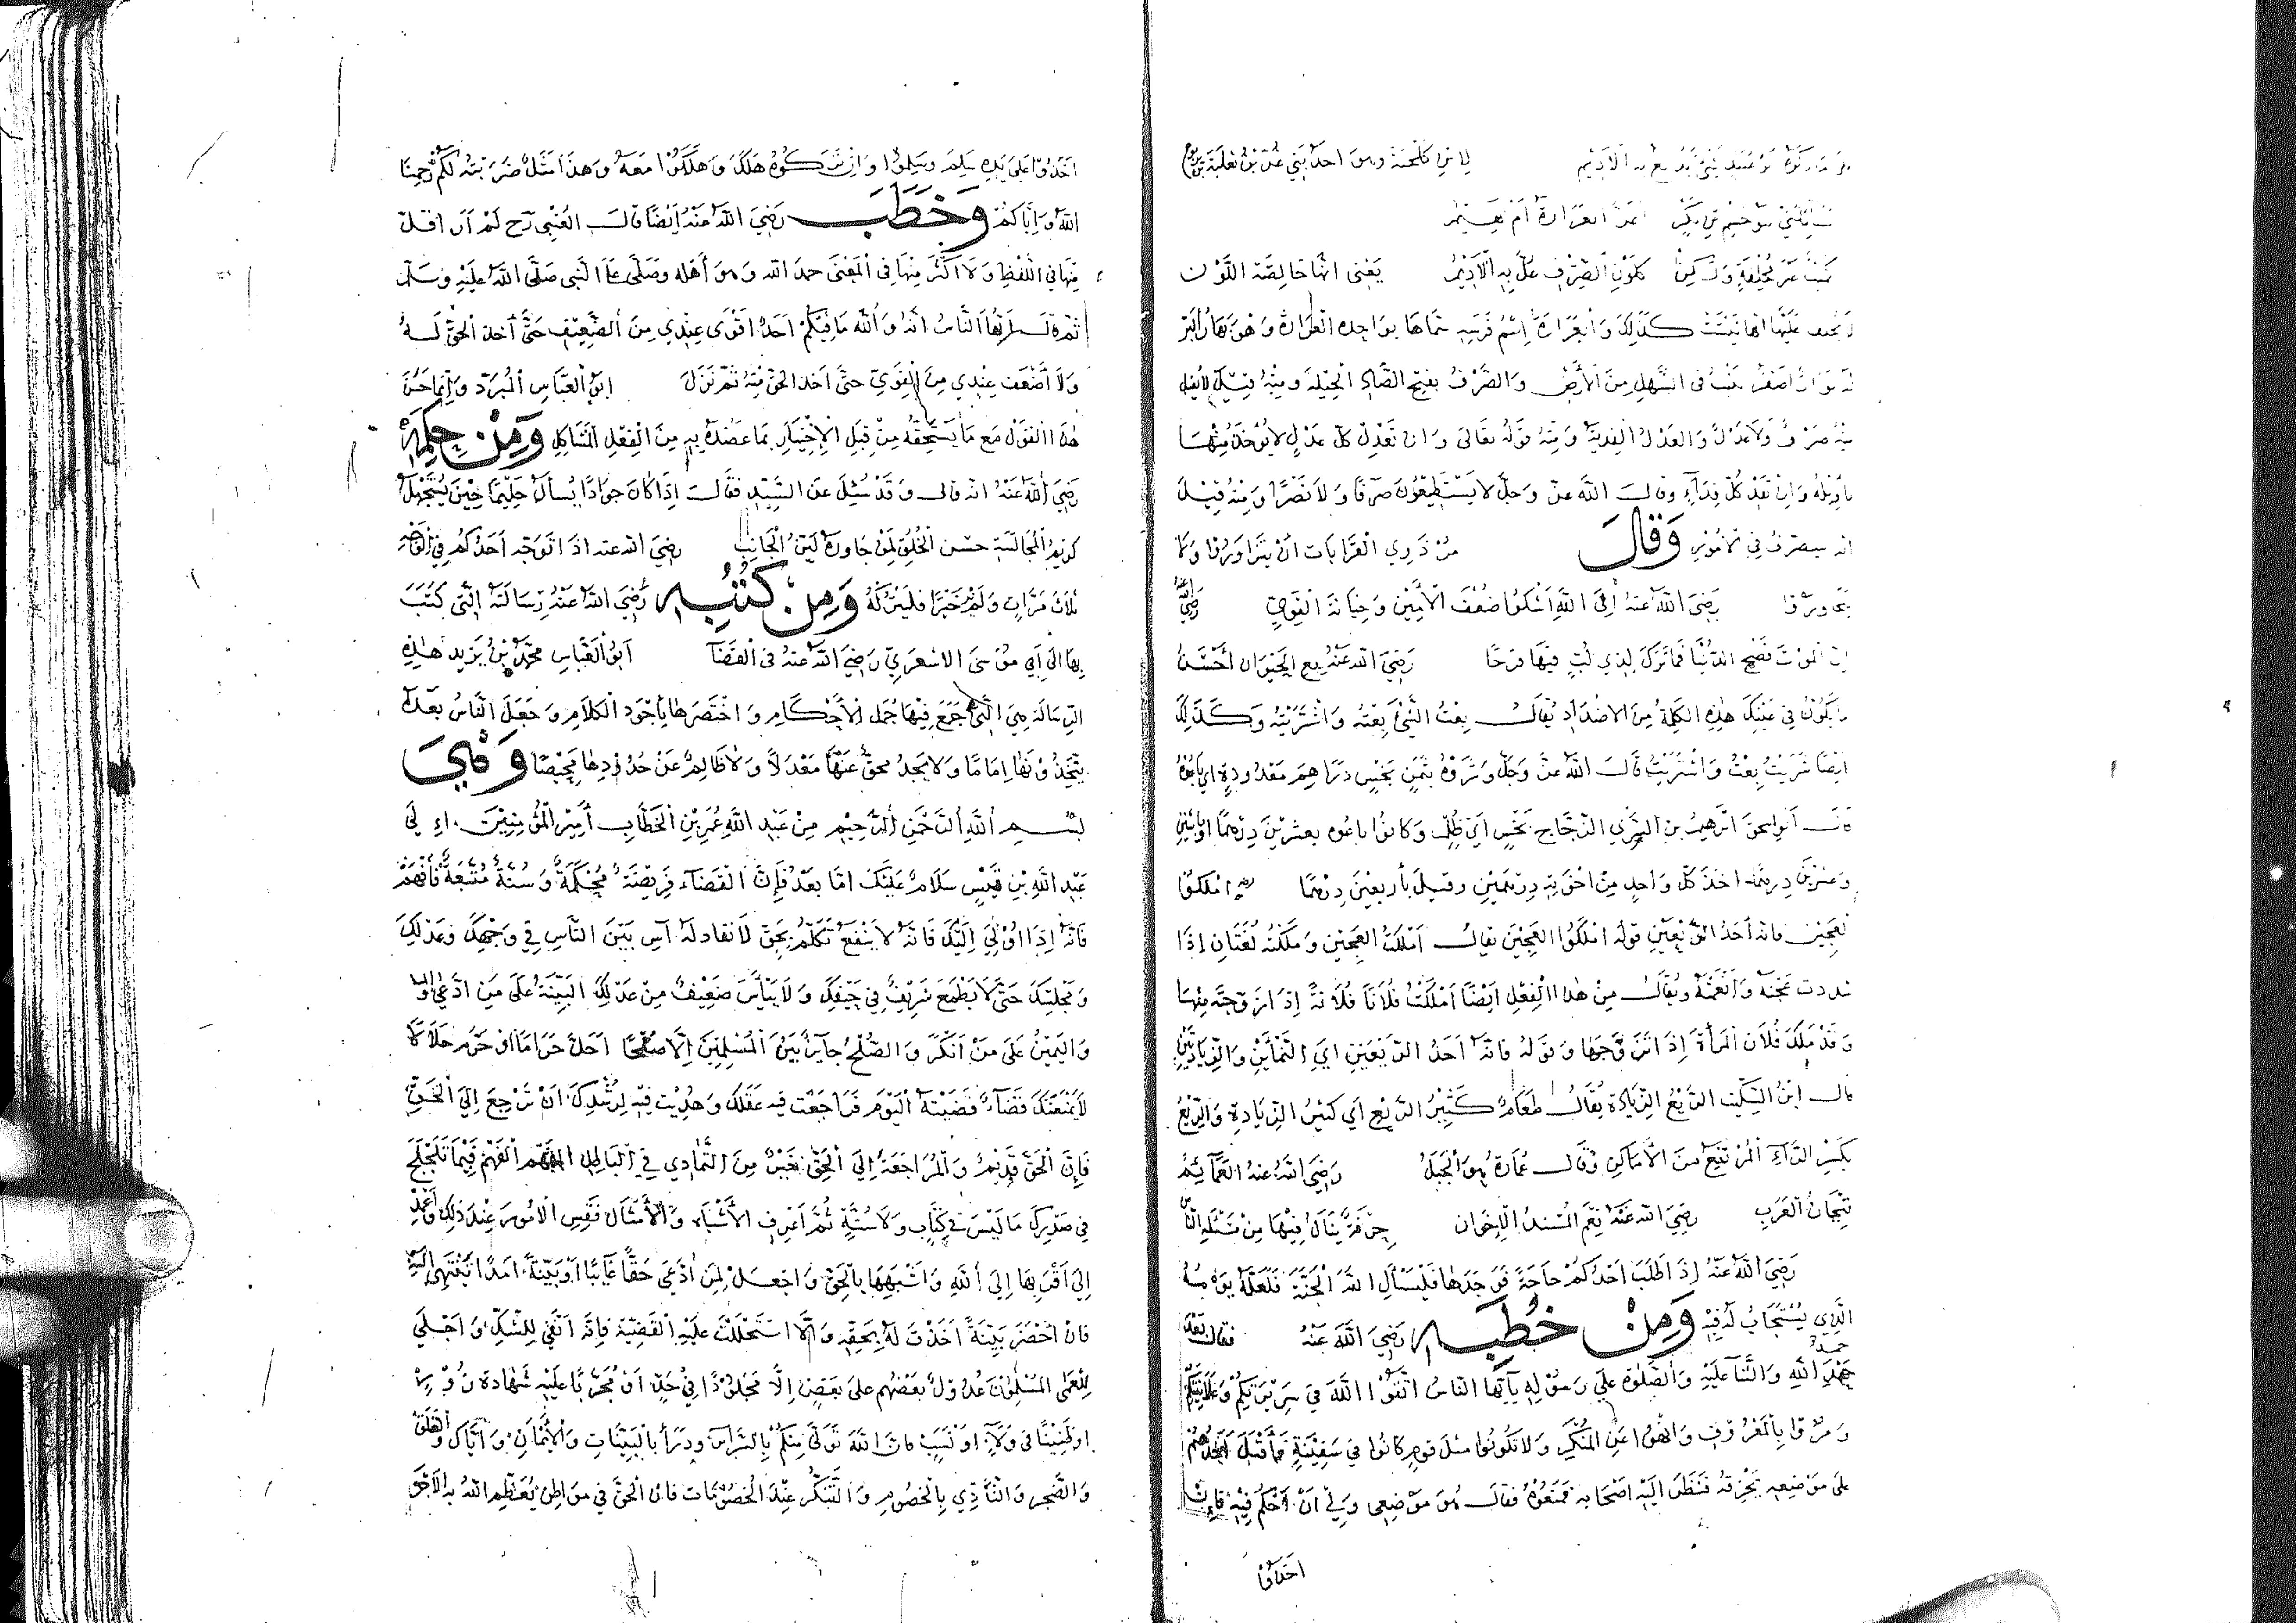 لابن كلحبة وهو احد بني عُرَين بن ثعلبة بن يربوع
تسائلني بنو جشم بن بكر اغرّاء العرادة أم بهيم
كميت غير محلفة ولكن كلون الصِّرف علّ به الاديم يعنى انها خالصة اللّون
لا يحلف عليها انها ليست كذلك والعرادة اسم فرسه سماها بواحدة العراد وهو بهار البرّ
له نوار اصفر ينبت فى السّهل من الأرض والصَّرف بفتح الصّاد الحيلة ومنه قيل لا يقبل
منه صرف ولا عدل والعدل الفدية ومنه قوله تعالى وان تعدل كلّ عدل لا يؤخذ منها
تأويله وان تفد كلّ فداء وقال الله عزّ وجلّ لا يستطيعون صرفا ولا نصرًا ومنه قيل
انه يتصرف فى الامور وَقَالَ مُر ذوي القرابات ان يتزاوروا ولا
يتجاوروا رضي الله عنه الى الله اشكوا ضعف الأمين وخيانة القوي رضي الله
انّ الموت فضح الدنيا فما ترك لذي لبّ فيها فرحًا رضي الله عنه بع الحيوان أحسن
ما يكون فى عينك هذه الكلمة من الاضداد يقال بعت الشئ بعته واشتريته وكذلك
ايضا شريت بعت واشتريت قال الله عزّ وجلّ وشروه بثمن بخس دراهم معدودة اي باعوه
قال ابو اسحق ابرهيم بن السّري الزجّاج بخس اي ظلم وكانوا باعوه بعشرين درهما او باثنين
وعشرين درهما اخذ كلّ واحد من اخوته درهمين وقيل بأربعين درهما املكوا
العجين فانه أحد الرّيعين قوله املكوا العجين يقال أملكت العجين وملكته لغتان إذا
شددت عجنه وأنعمته ويقال من هذا الفعل ايضًا أملكت فلانًا فلانةً إذا زوجته منها
وقد ملك فلان امرأة إذا تزوّجها وقوله فانه احد الرّيعين اي النّمائين والزّيادتين
قال ابن السّكيت الرّيع الزّيادة يقال طعام كثير الرّيع اي كثير الزّيادة والرّيع
بكسر الرّاء المرتفع من الأماكن وقال عمارة هو الجبل رضي الله عنه العمائم
تيجان العرب رضي الله عنه نعم المسند الإخوان حرفة ينال فيها من مسئلة الناس
رضي الله عنه إذا طلب احدكم حاجة فوجدها فليسأل الله الجنّة فلعلّه يومه
الّذي يستجاب له فيه وَمِنْ خُطَبِه رضي الله عنه فقال بعد
حمد الله والثناء عليه والصّلوة على رسوله يآيّها النّاس اتّقوا الله في سريرتكم وعلانيتكم
ومروا بالمعروف وانهوا عن المنكر ولا تكونوا مثل قوم كانوا في سفينة فأقبل احدهم
على موضعه يخرقه فنظر اليه اصحابه فمنعوه فقال هو موضعي ولي ان احكم فيه فان
اخذوا
اخذوا على يده سلم وسلموا وان تركوه هلك وهلكوا معه وهذا مثل ضربته لكم رحمنا
الله وايّاكم وَخَطَبَ رضي الله عنه ايضًا قال العتبي رح لم ار اقلّ
منها في اللفظ ولا اكثر منها في المعنى حمد الله وهو أهله وصلّى على النبي صلّى الله عليه وسلّم
ثم قال ايّها النّاس انه والله ما فيكم احد اقوى عندي من الضّعيف حتّى آخذ الحقّ له
ولا أضعف عندي من القويّ حتّى آخذ الحقّ منه ثم نزل ابو العبّاس المبرّد وإنما حسن
هذا القول مع ما يستحقه من قبل الإختيار بما عضده به من الفعل المشاكل وَمِنْ حِكَمِه
رضي الله عنه انه قال وقد سئل عن السّيّد فقال إذا كان جوادًا يسأل حليمًا حين يستجهل
كريم المجالسة حسن الخلق لمن جاوره ليّن الجانب رضي الله عنه اذا توجّه احدكم في الوجه
ثلاث مرّات ولم ير خيرًا فليتركه وَمِنْ كُتُبِه رضي الله عنه رسالته الّتي كتب
بها الى أبي موسى الاشعريّ رضي الله عنه فى القضآء ابو العبّاس محمّد بن يزيد هذه
الرّسالة هي الّتي جمع فيها جمل الأحكام واختصرها بأجود الكلام وجعل النّاس بعده
يتّخذونها إمامًا ولا يجد محقّ عنها معدلاً ولا ظالم عن حدودها محيصًا وَهْيَ
بسم الله الرّحمن الرّحيم من عبد الله عمر بن الخطاب أمير المؤمنين الي
عبد الله بن قيس سلام عليك امّا بعد فإنّ القضآء فريضة محكمة وسنّة متّبعة فأفهم
فانّه إذا اولي اليك فانه لا ينفع تكلّم بحقّ لا نفاد له آس بين النّاس في وجهك وعدلك
ومجلسك حتّى لا يطمع شريف في حيفك ولا ييأس ضعيف من عدلك البيّنة على من ادّعى
واليمين على من انكر والصّلح جآئز بين المسلمين إلّا صلحًا احلّ حرامًا او حرّم حلالاً
لا يمنعنك قضآء قضيته اليوم فراجعت فيه عقلك وهديت فيه لرشدك ان ترجع إلى الحقّ
فإنّ الحقّ قديم والمراجعة إلى الحقّ خير من التّمادي في الباطل الفهم الفهم فيما تلجلج
في صدرك ما ليس في كتاب ولا سنّة ثم اعرف الأشباه والأمثال فقس الامور عند ذلك واعمد
إلى أقربها إلى الله وأشبهها بالحقّ واجعل لمن ادّعى حقًّا غآئبًا او بيّنة امدًا ينتهى اليه
فان احضر بيّنة اخذت له بحقه والّا استحللت عليه القضيّة فإنّه انفى للشّكّ واجلى
للعمى المسلمون عدول بعضهم على بعض إلّا مجلودًا في حدّ او مجرّبًا عليه شهادة زور
او ظنينًا فى ولآء او نسب فانّ الله تولّى منكم السّرائر ودرأ بالبيّنات والأيمان وايّاك والغلق
والضّجر والتّأذّي بالخصوم والتّنكّر عند الخصومات فانّ الحقّ في مواطن يعظم الله به الاجر